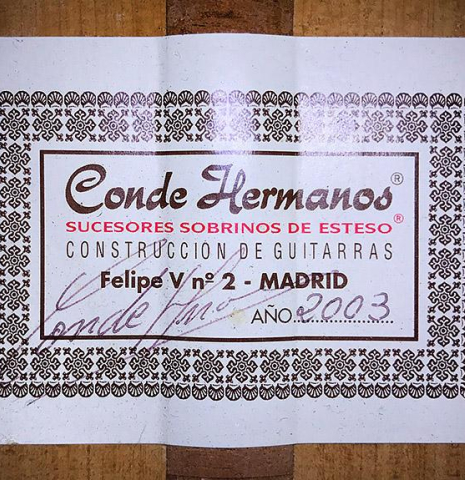 Conde Hermanos®
SUCESORES SOBRINOS DE ESTESO®
CONSTRUCCION DE GUITARRAS
Felipe V nº 2 - MADRID
Conde Hnos
AÑO 2003